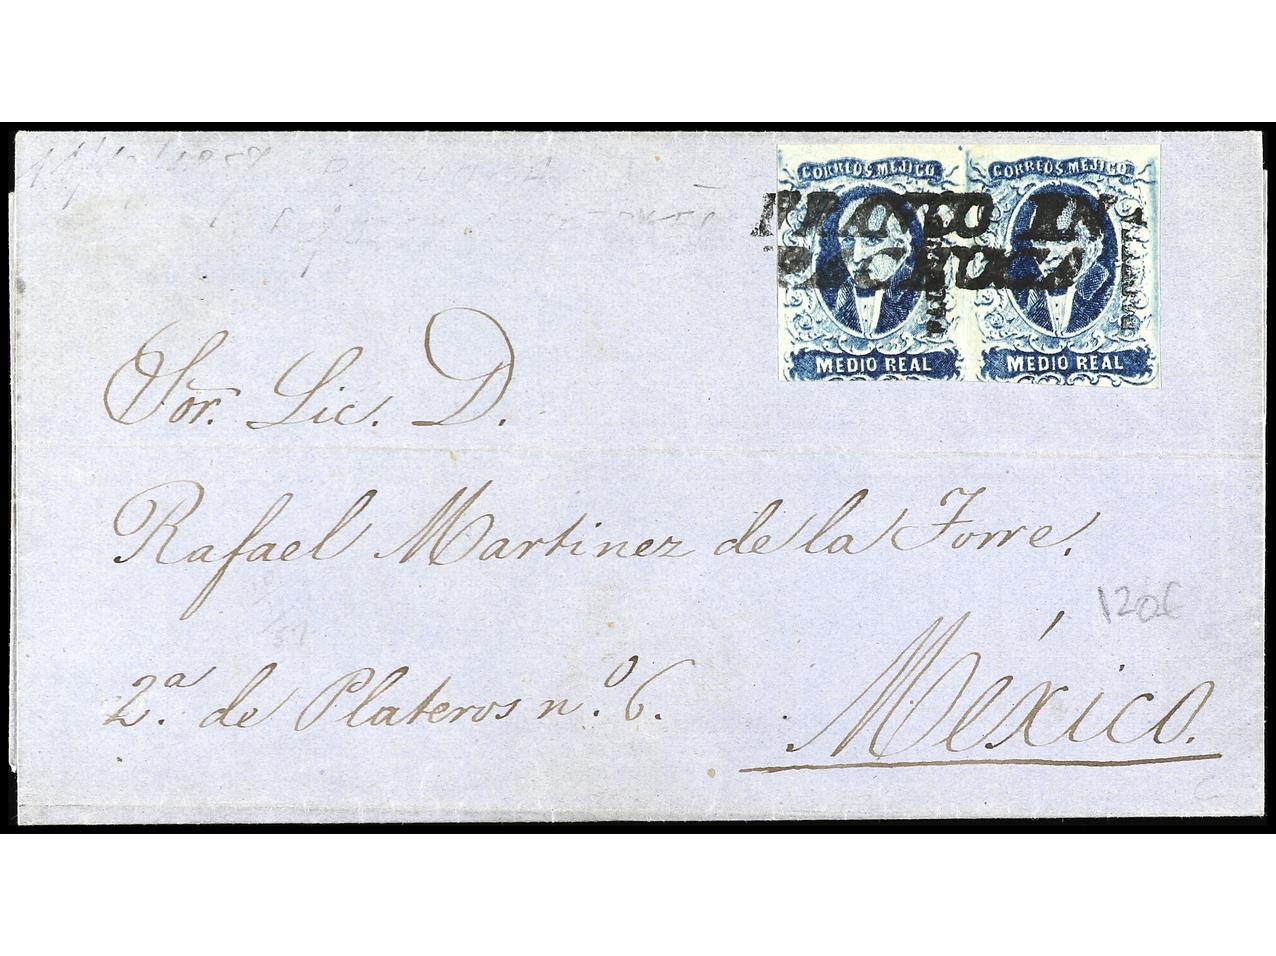 CORREOS MEJICO CORREOS MEJICO
FRANCO EN
PACHUCA
MEDIO REAL MEDIO REAL
Sor. Lic. D.
Rafael Martinez de la Torre.
120€
2ª. de Plateros nº. 6.
México.